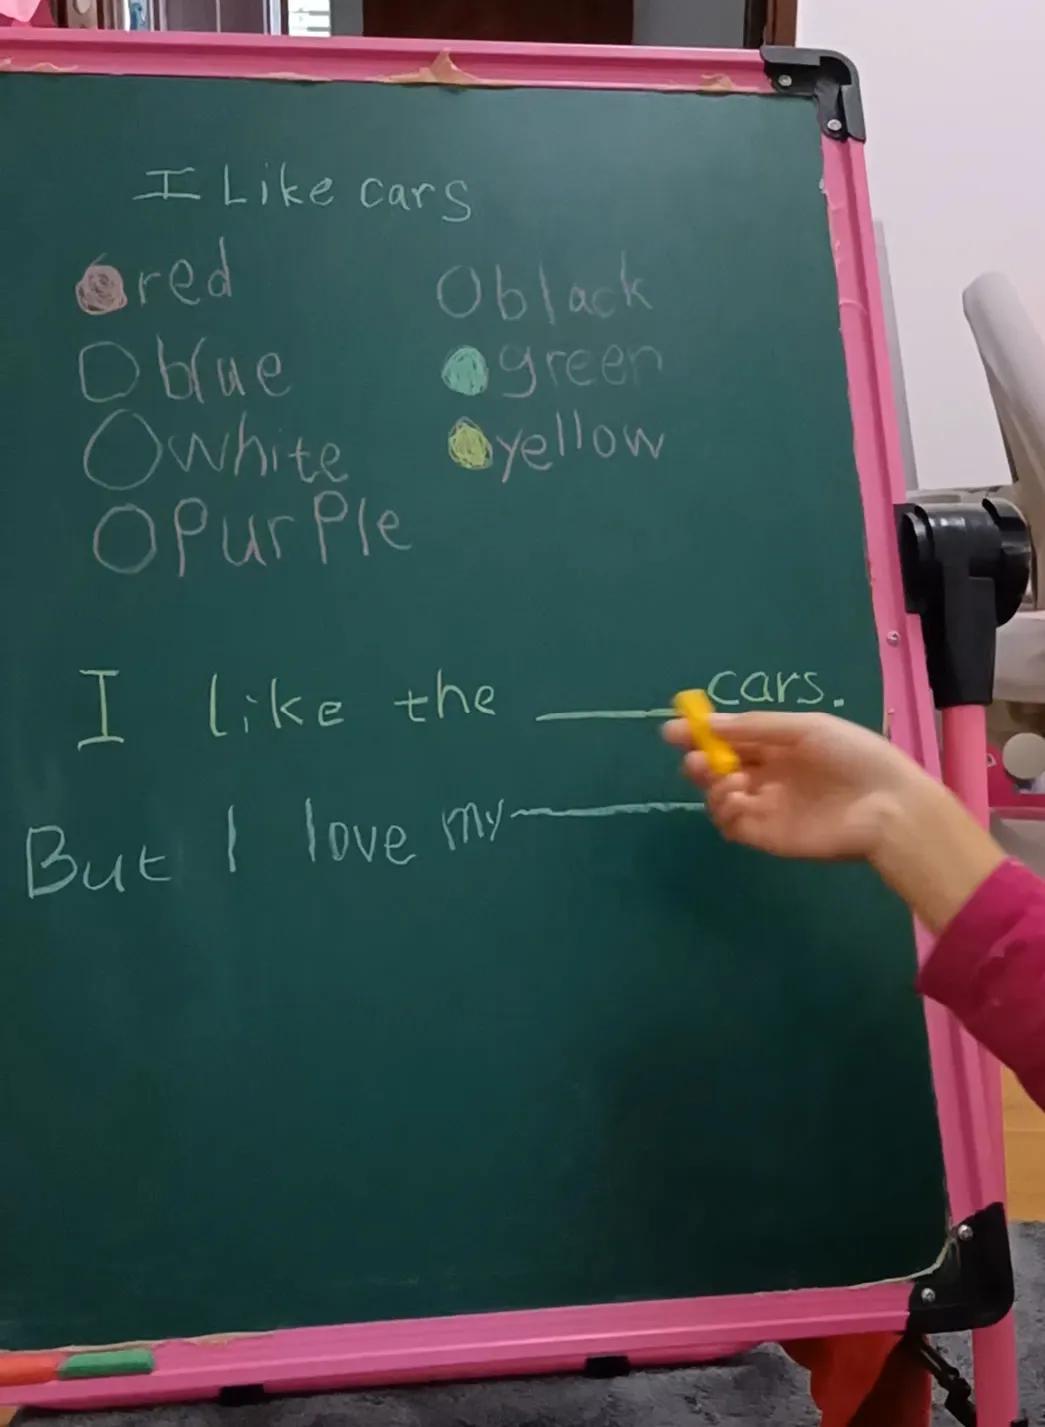 I Like cars
red black
blue green
white yellow
PurPle
I like the ____ cars.
But I love my ____